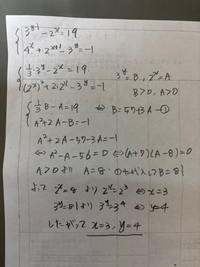 { 3^{y-1} - 2^x = 19
4^x + 2^{x+1} - 3^y = -1
{ 1/3・3^y - 2^x = 19
(2^x)^2 + 2・2^x - 3^y = -1
3^y = B, 2^x = A
B > 0, A > 0
{ 1/3 B - A = 19 ⇔ B = 57 + 3A - ①
A^2 + 2A - B = -1
A^2 + 2A - 57 - 3A = -1
⇔ A^2 - A - 56 = 0 ⇔ (A + 7)(A - 8) = 0
A > 0 より A = 8 ①に代入して B = 81
よって 2^x = 8 より 2^x = 2^3 ⇔ x = 3
3^y = 81 より 3^y = 3^4 ⇔ y = 4
したがって x = 3, y = 4